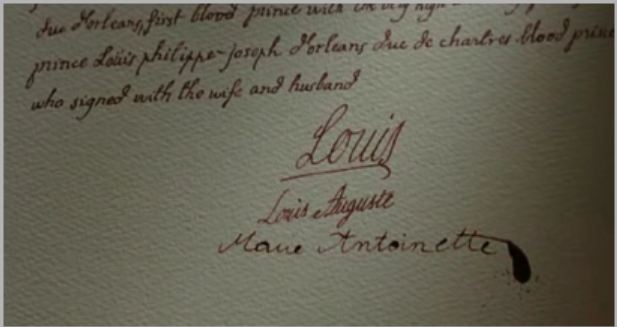 duc d'orleans, first blood prince with the very high
prince Loüis philippe-joseph d'orleans duc de chartres blood prince
who signed with the wife and husband
Louis
Louis Auguste
Marie Antoinette